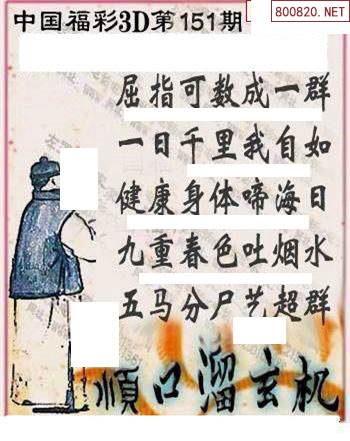 800820.NET
中国福彩3D第151期
屈指可数成一群
一日千里我自如
健康身体啼海日
九重春色吐烟水
五马分尸艺超群
順口溜玄机